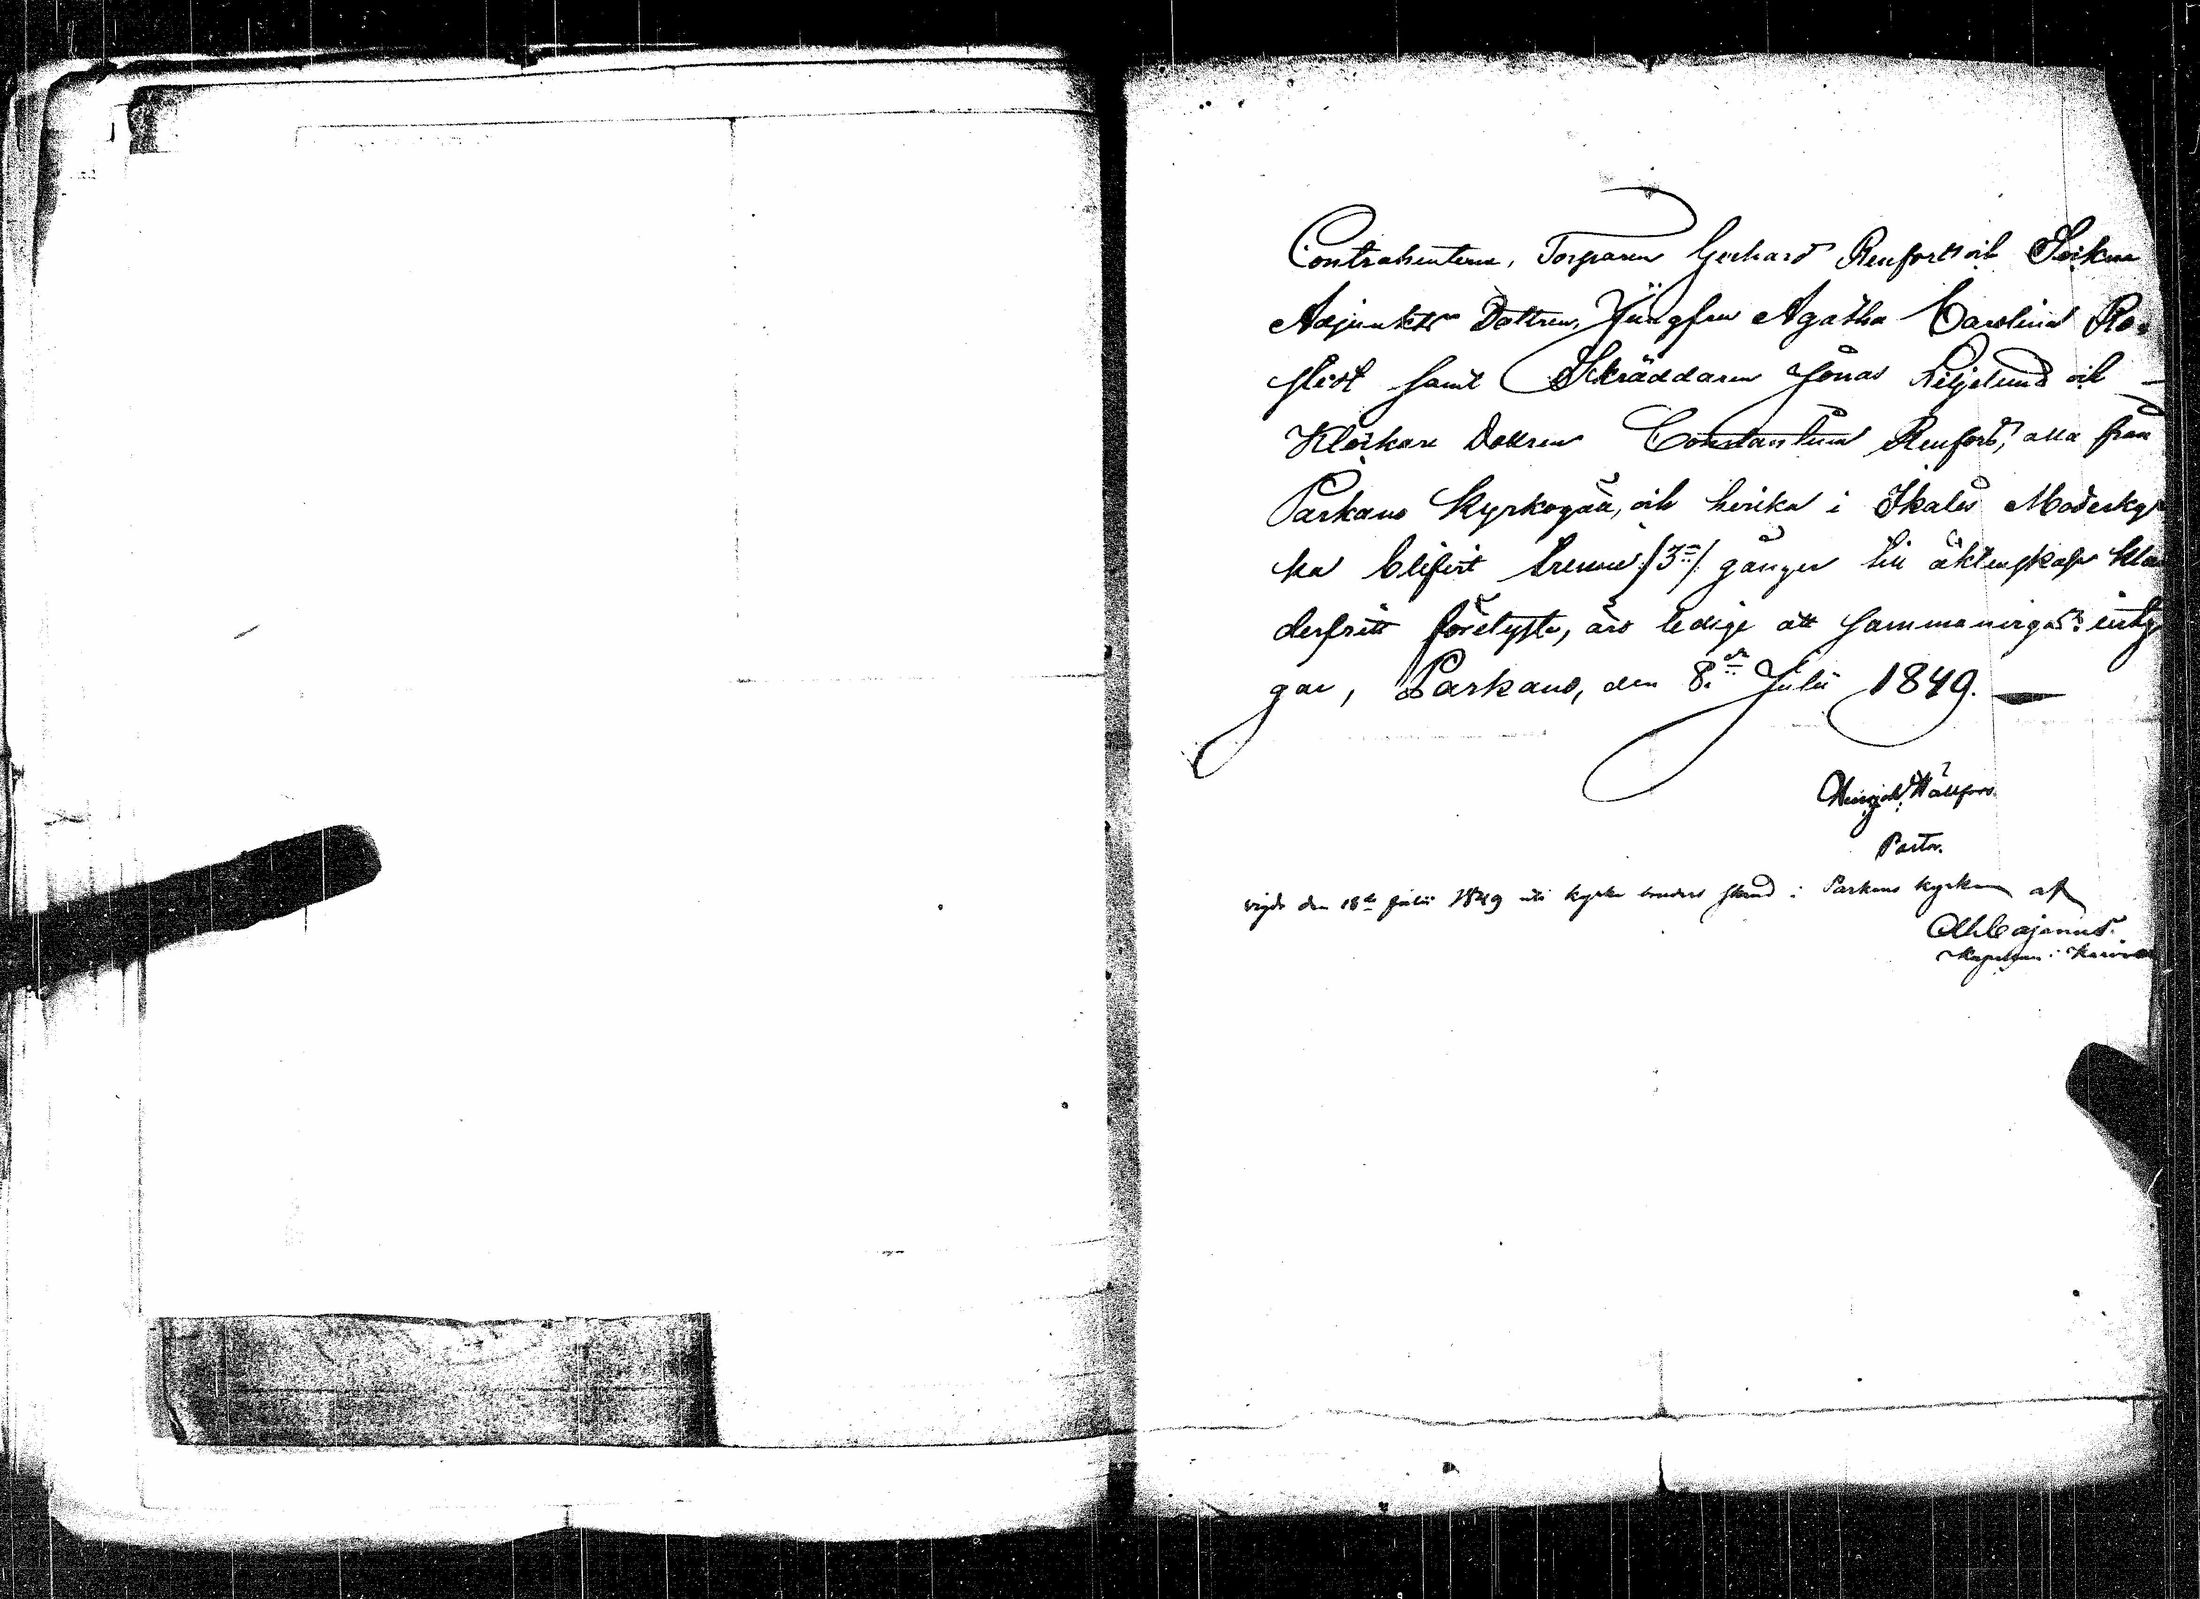 Contrahenterne, Torparen Gerhard Renfors och Sockne
Adjunkts Dottren, Jungfru Agatha Carolina Ro-
stedt samt Skräddaren Jonas Liljelund och
Klockare Dottren Constantina Renfors, alla från
Parkano Kyrkogåll, och hvilka i Ikalis Moderkyr
ka blifvit trenne /3ne/ gånger till äktenskap klan
derfritt förelyste, äro ledige att sammanvigas: intyg
gar, Parkano, den 8de Julii 1849.
Hällfors.
Pastor.
vigde den 18de julii 1849 uti kyrko stånd i Parkano kyrka af
Cajanus.
Kapellan i